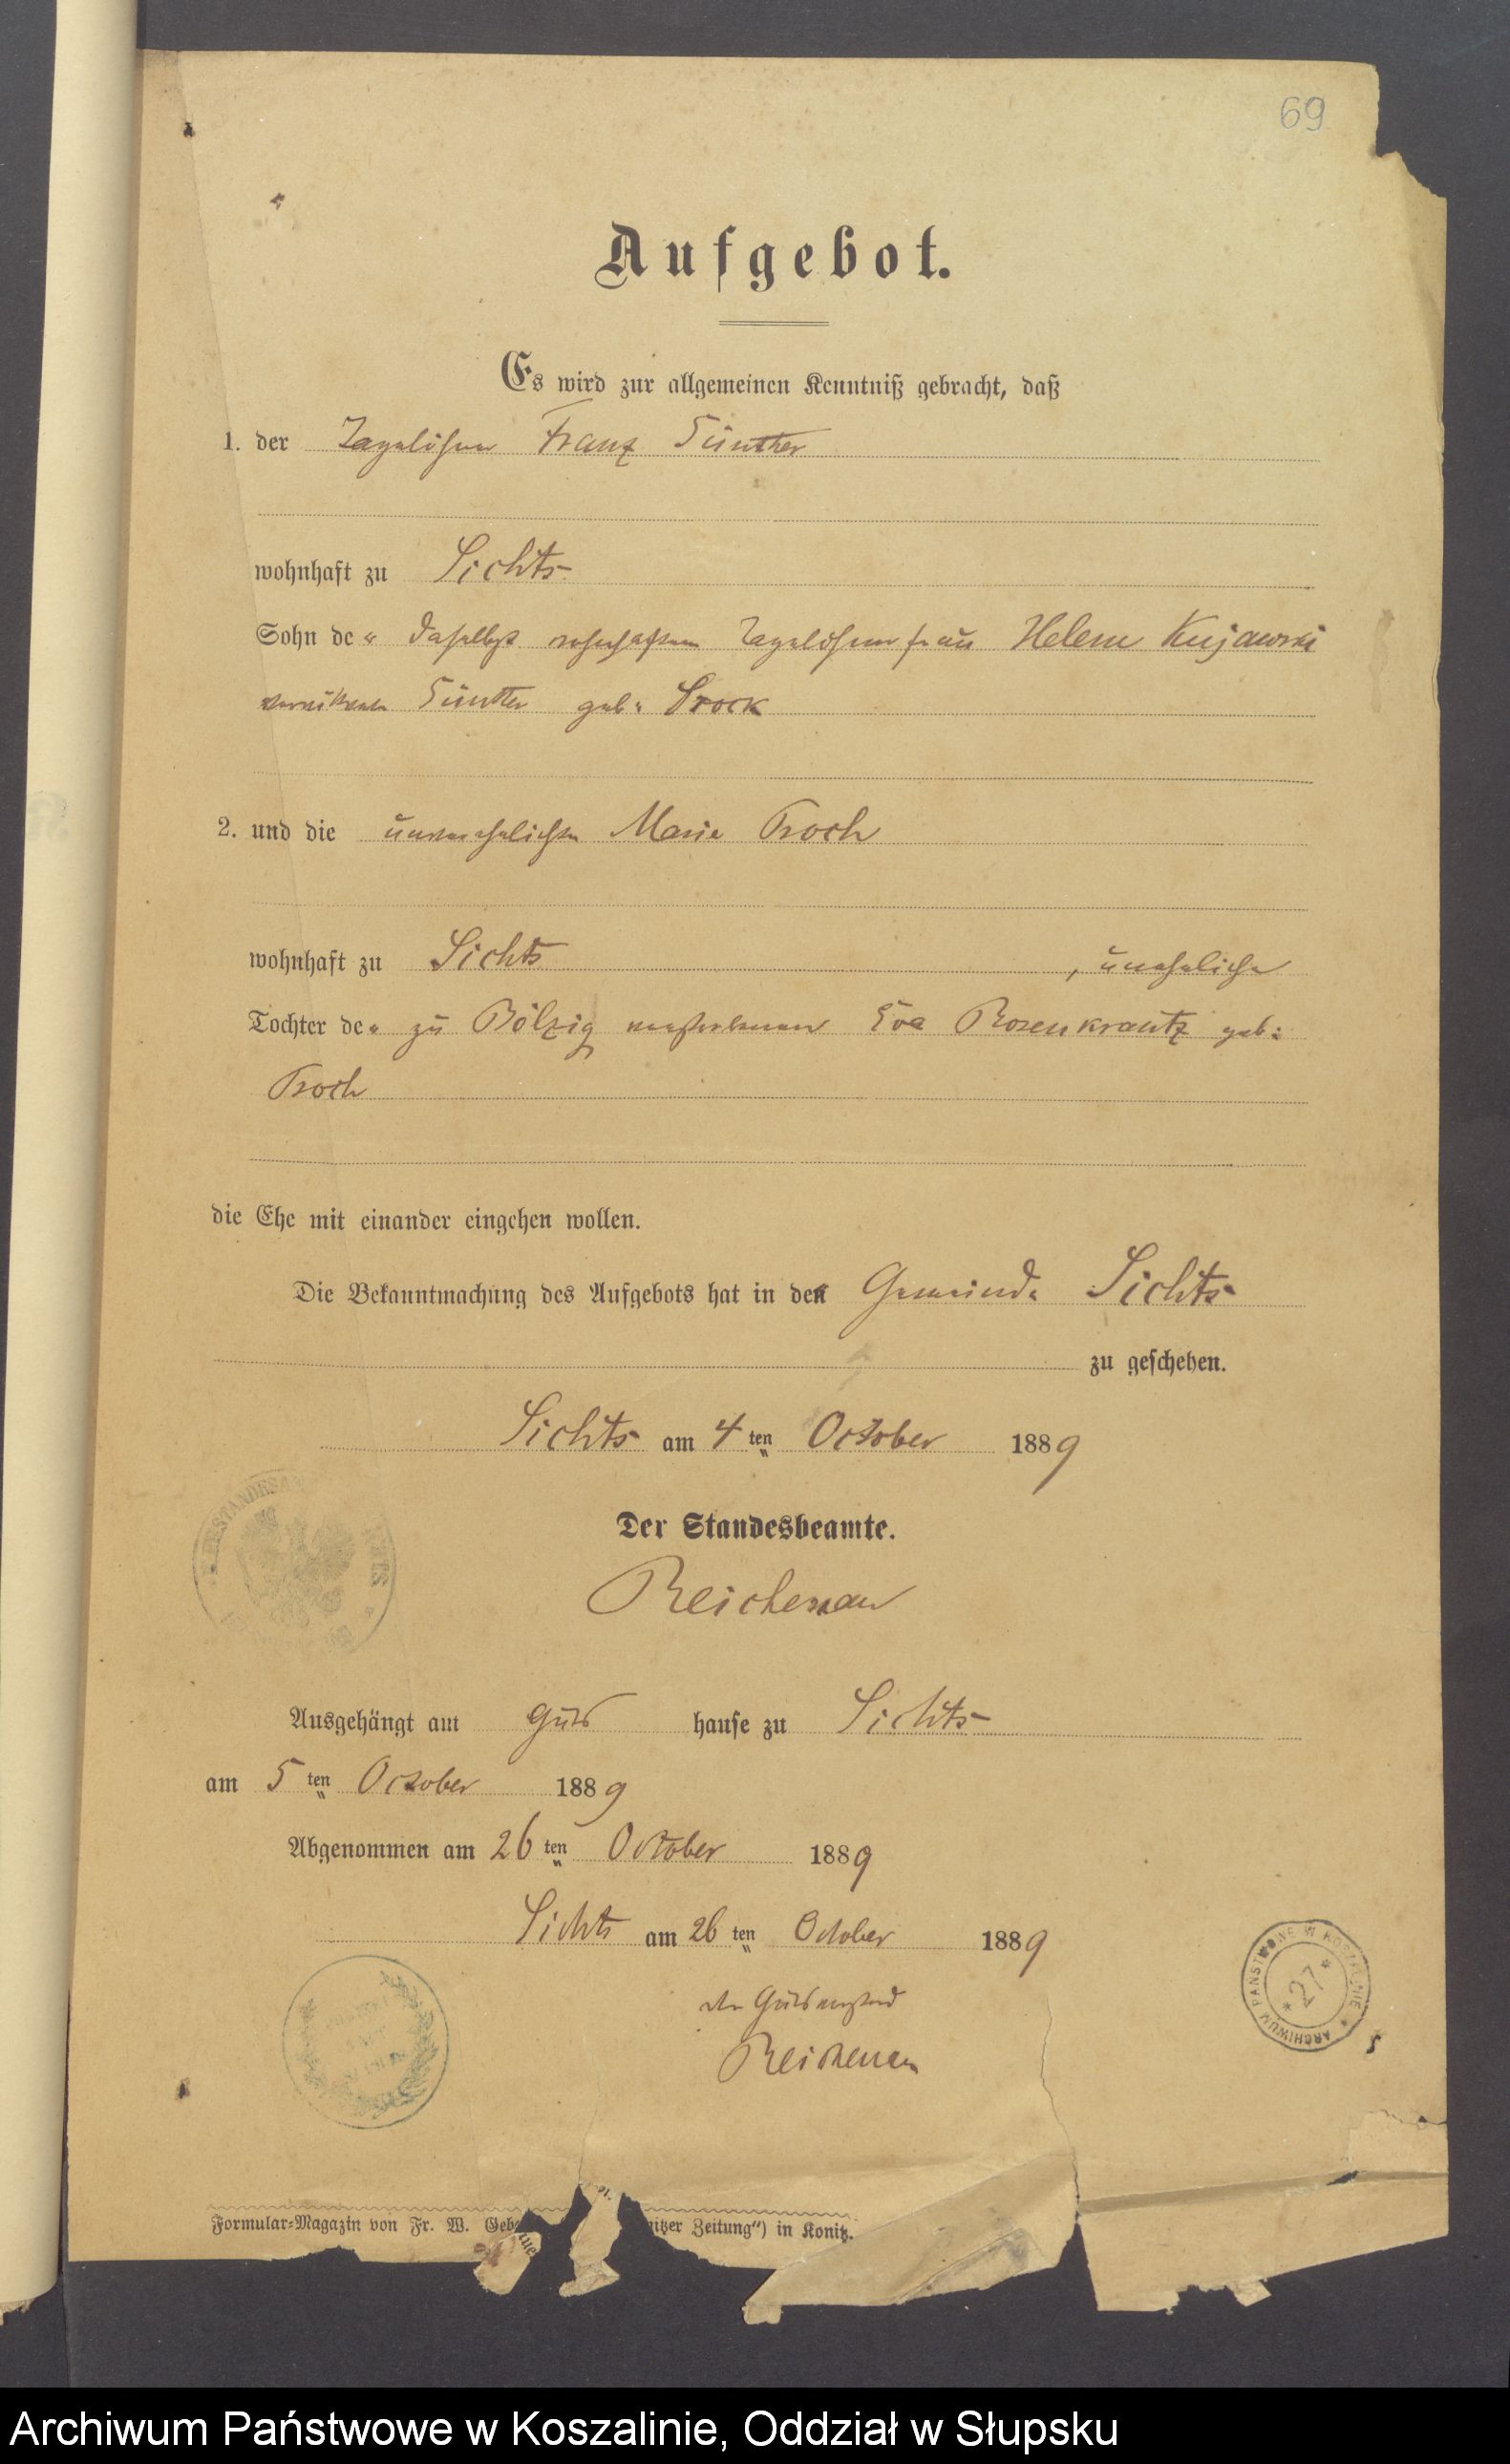 69
Aufgebot.
Es wird zur allgemeinen Kenntniß gebracht, daß
1. der Tagelöhner Franz Günther
wohnhaft zu Sichts
Sohn der daselbst wohnhaften Tagelöhnerfrau Helene Kujawski
verwittwete Günther geb. Srock
2. und die unverehelichte Marie Troch
wohnhaft zu Sichts, uneheliche
Tochter der zu Bölzig verstorbenen Eva Rosenkrantz geb:
Troch
die Ehe mit einander eingehen wollen.
Die Bekanntmachung des Aufgebots hat in der Gemeinde Sichts
zu geschehen.
Sichts am 4ten October 1889
Der Standesbeamte.
Reichenau
Ausgehängt am Guts hause zu Sichts
am 5ten October 1889
Abgenommen am 26ten October 1889
Sichts am 26ten October 1889
der Gutsvorstand
Reichenau
ARCHIWUM PAŃSTWOWE W KOSZALINIE
* 27 *
Formular-Magazin von Fr. W. Geb nitzer Zeitung“) in Konitz.
Archiwum Państwowe w Koszalinie, Oddział w Słupsku